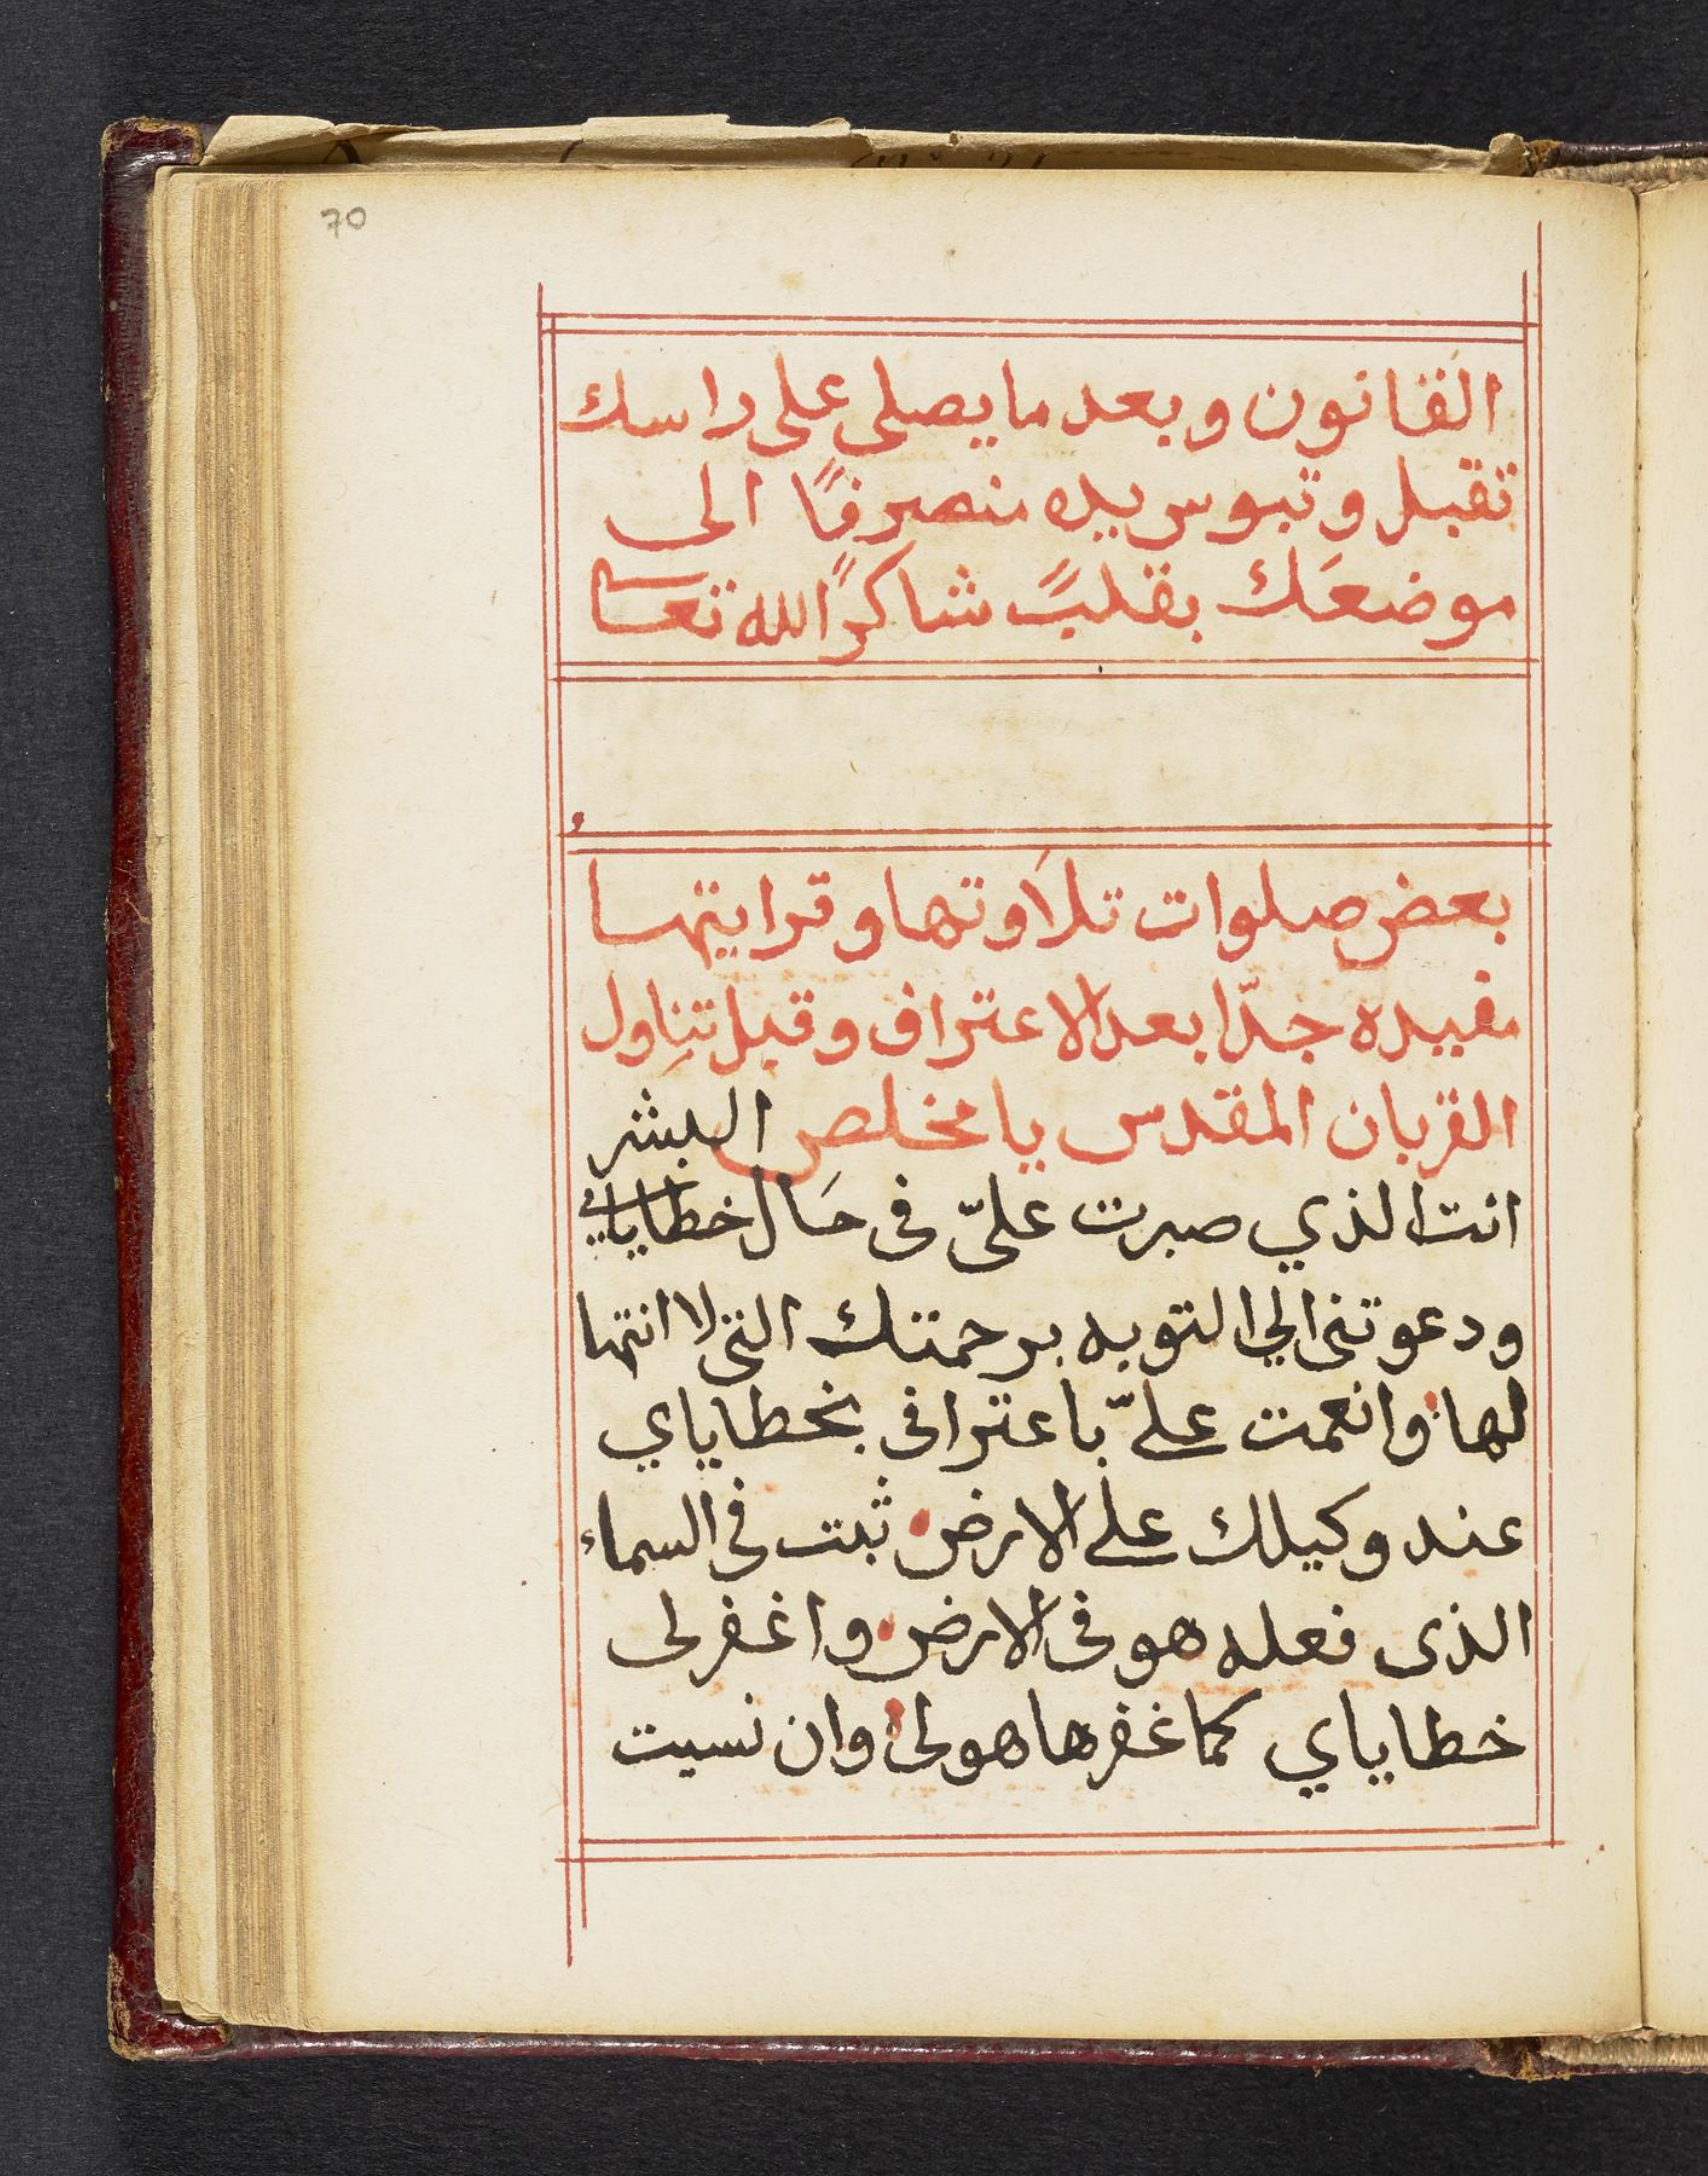 70
القانون وبعد ما يصلى على راسك
تقبل وتبوس يده منصرفًا الى
موضعَك بقلبً شاكرًا لله تعا
بعض صلوات تلاَوتها وقرايتها
مفيده جدّا بعد الاعتراف وقبل تنِاول
القربان المقدس يا مخلص البشر
انت الذي صبرت علىّ فى حَال خطاياى
ودعوتنى الي التوبه برحمتك التى لا انتها
لها وانعمت علىّ باعترافى بخطاياي
عند وكيلك على الارض ثبت فى السماء
الذى فعله هو فى الارض واغفر لى
خطاياي كما غفرها هو لى وان نسيت